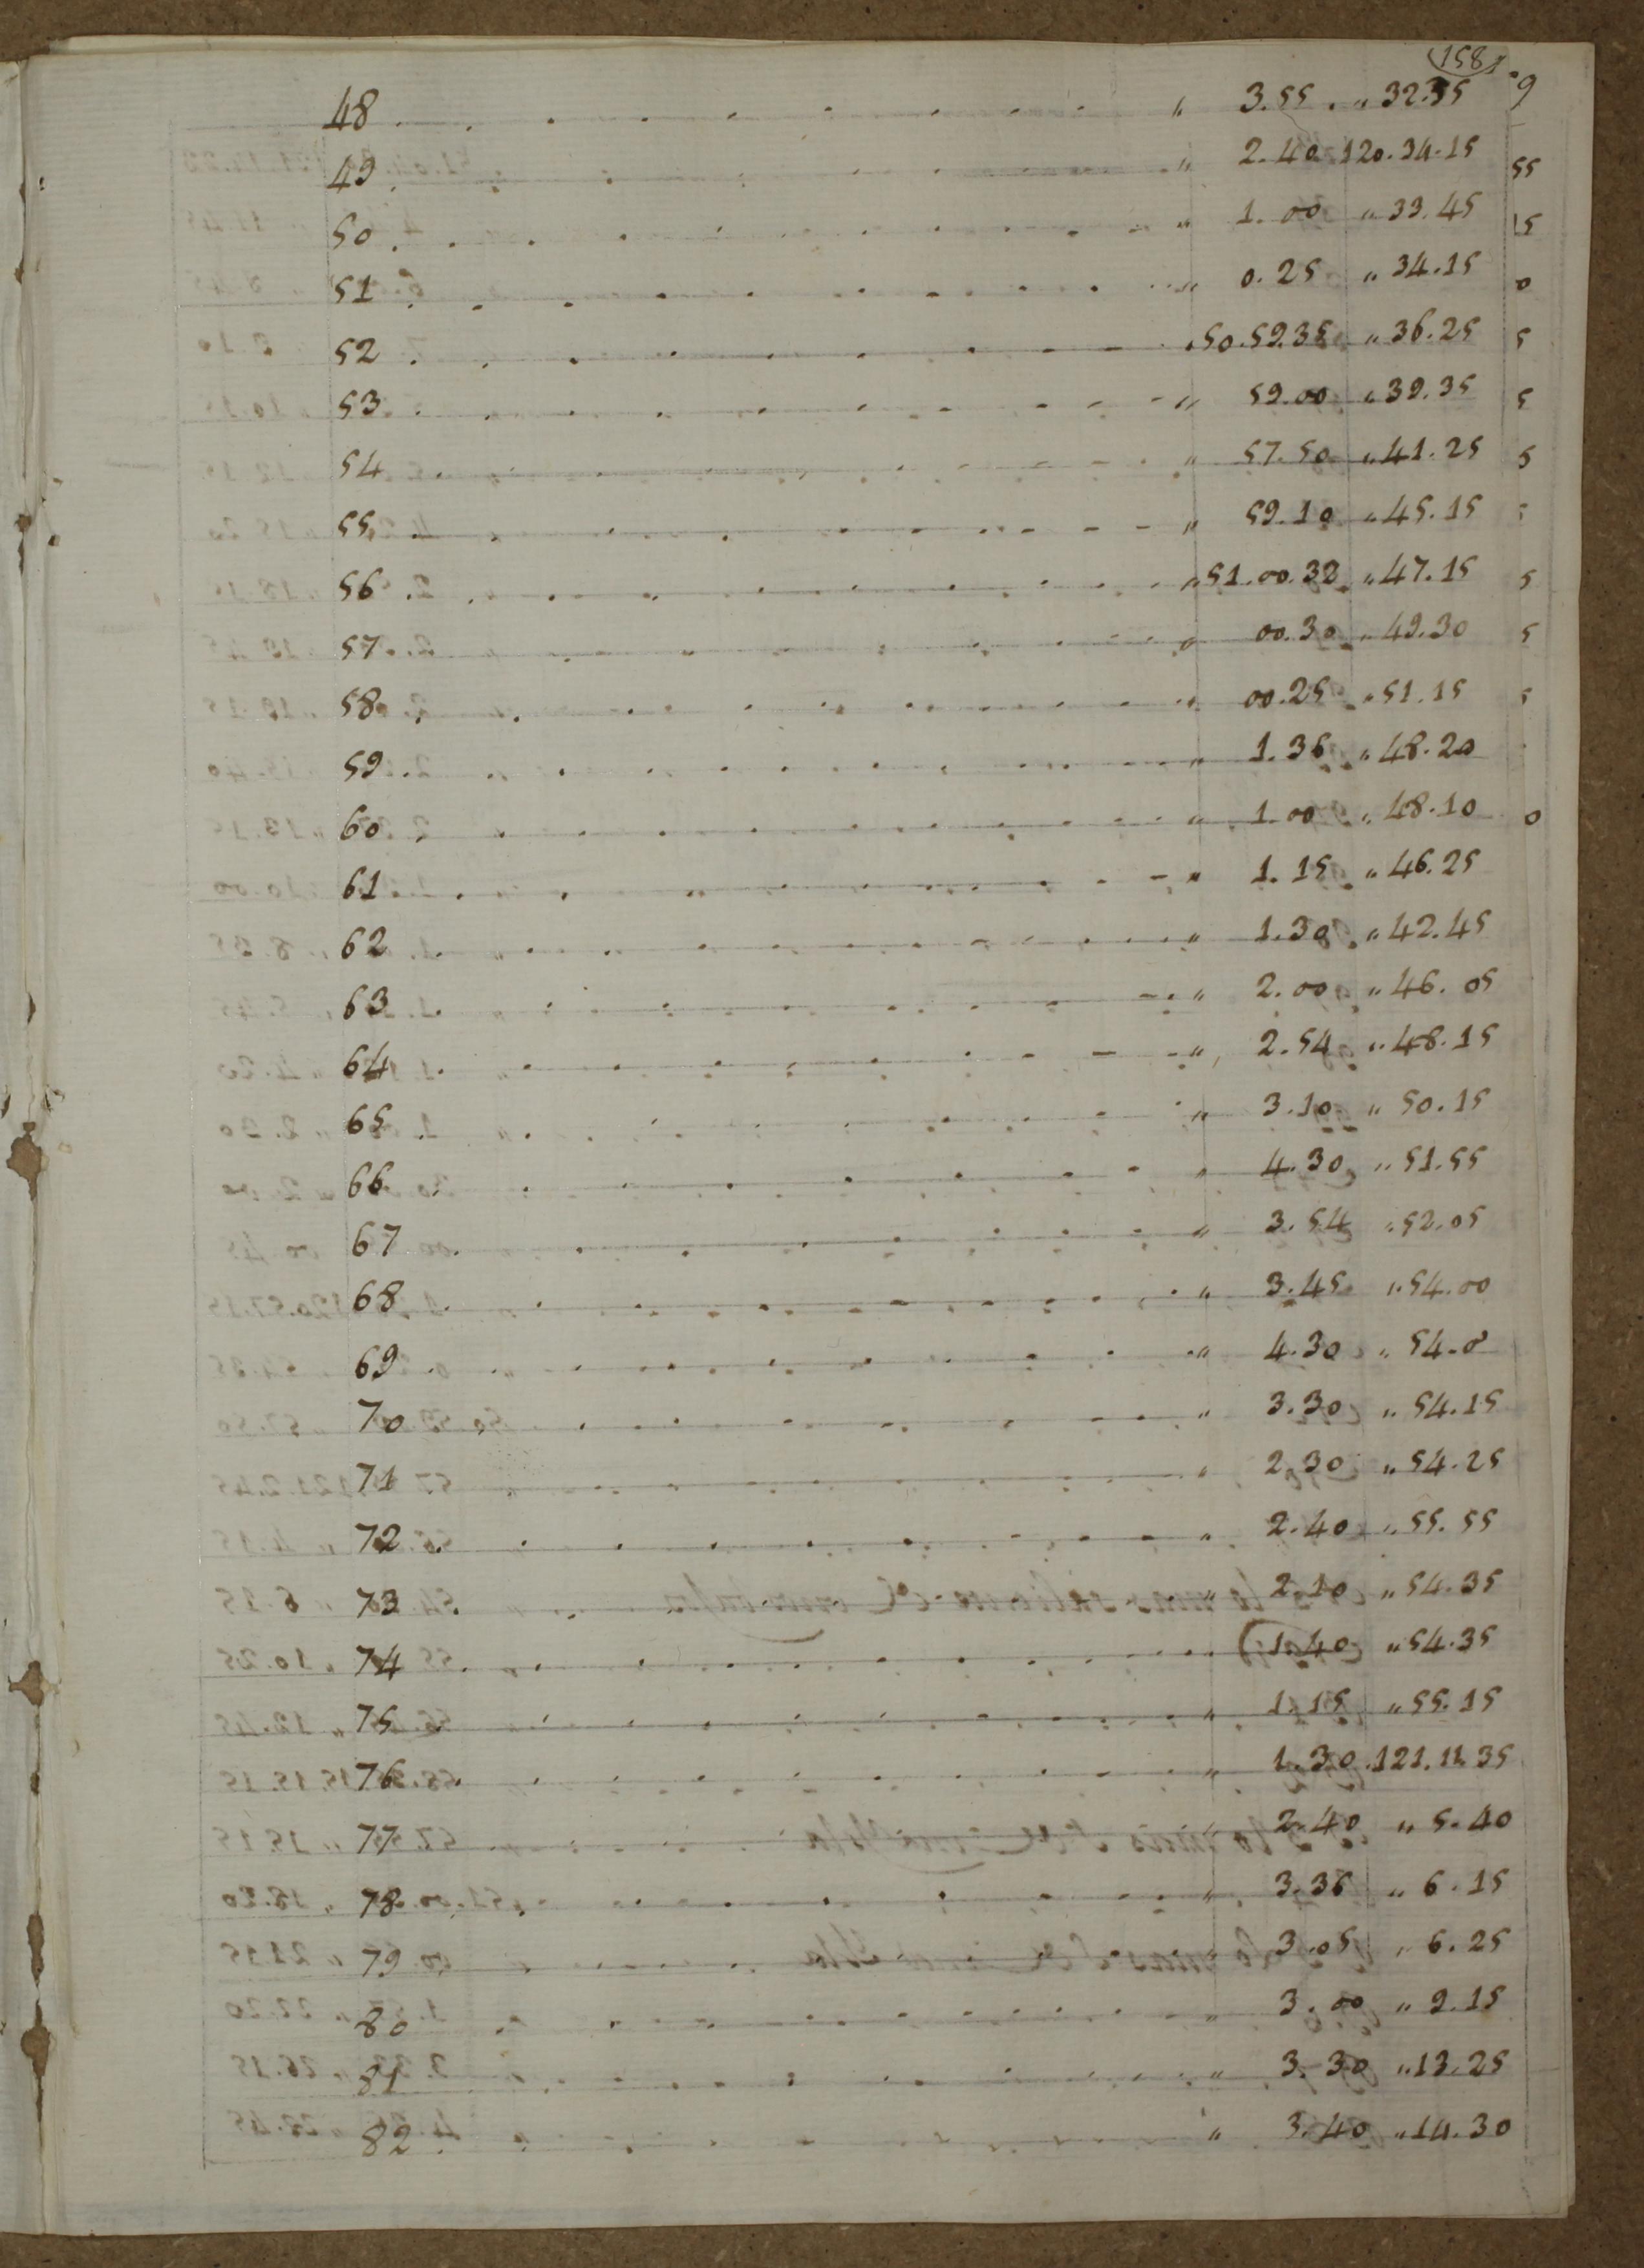 158
48 . . . . . . . . „ 3.55 . „ 32.35
49 . . . . . . . . „ 2.40 120.34.15
50 . . . . . . . . „ 1.00 „ 33.45
51 . . . . . . . . „ 0.25 „ 34.15
52 . . . . . . . . 50.59.35 „ 36.25
53 . . . . . . . . „ 59.00 „ 39.35
54 . . . . . . . . „ 57.50 „ 41.25
55 . . . . . . . . „ 59.10 „ 45.15
56 . . . . . . . . „ 51.00.32 „ 47.15
57 . . . . . . . . „ 00.30 „ 49.30
58 . . . . . . . . „ 00.25 „ 51.15
59 . . . . . . . . „ 1.36 „ 48.20
60 . . . . . . . . „ 1.00 „ 48.10
61 . . . . . . . . „ 1.15 „ 46.25
62 . . . . . . . . „ 1.30 „ 42.45
63 . . . . . . . . „ 2.00 „ 46.05
64 . . . . . . . . „ 2.54 „ 48.15
65 . . . . . . . . „ 3.10 „ 50.15
66 . . . . . . . . „ 4.30 „ 51.55
67 . . . . . . . . „ 3.54 „ 52.05
68 . . . . . . . . „ 3.45 „ 54.00
69 . . . . . . . . „ 4.30 „ 54.0
70 . . . . . . . . „ 3.30 „ 54.15
71 . . . . . . . . „ 2.30 „ 54.25
72 . . . . . . . . „ 2.40 „ 55.55
73 . . . . . . . . „ 2.10 „ 54.35
74 . . . . . . . . 1.40 „ 54.35
75 . . . . . . . . „ 1.15 „ 55.15
76 . . . . . . . . „ 1.30 . 121.11.35
77 . . . . . . . . „ 2.40 „ 5.40
78 . . . . . . . . „ 3.36 „ 6.15
79 . . . . . . . . „ 3.05 „ 6.25
80 . . . . . . . . „ 3.00 „ 9.15
81 . . . . . . . . „ 3.30 „ 13.25
82 . . . . . . . . „ 3.40 „ 14.30